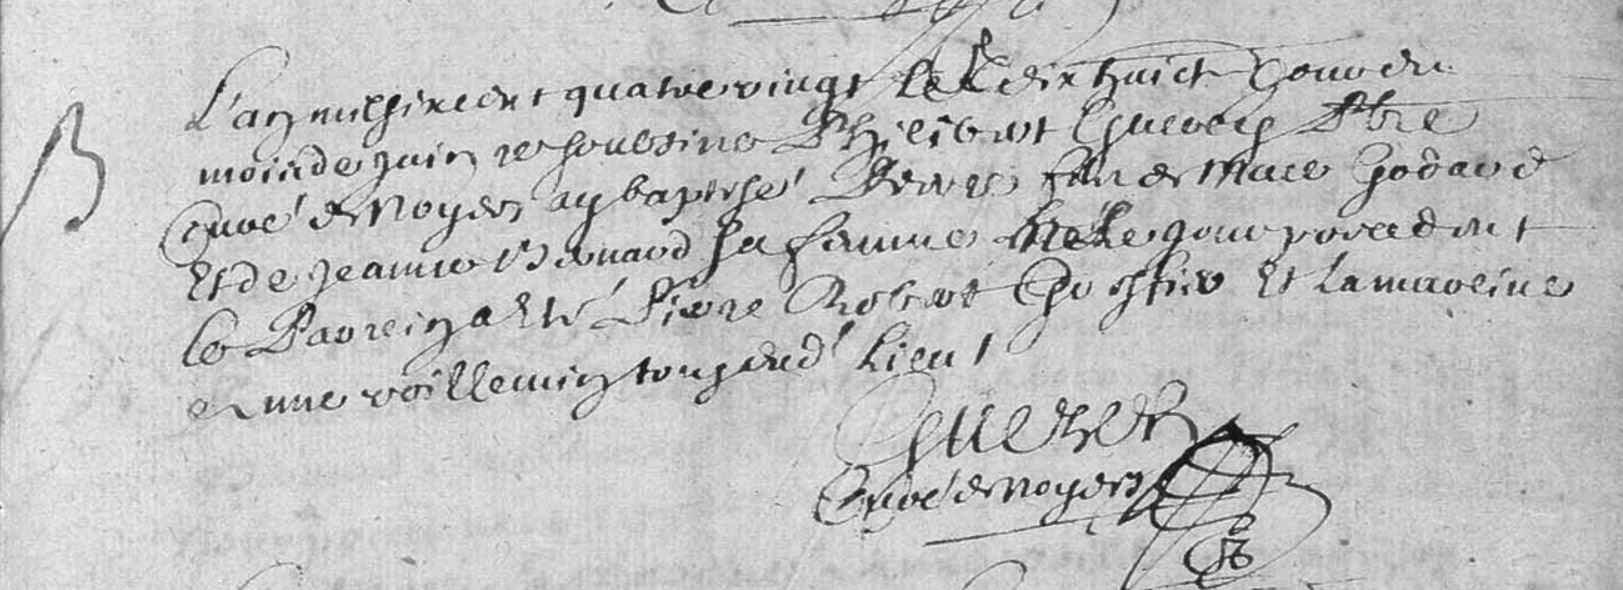 B
L'an mil six cent quatre vingt le dix huict Jour du
mois de juin je soubsine Philibert Guenen Pbre
Curé de Noyers ay baptisé Pierre fils de Mace Godard
Et de Jeanne Bernard sa femme né le jour precedent
le Parein a Esté Pierre Robert Et la mareine
Anne voillemin
Curé de Noyers